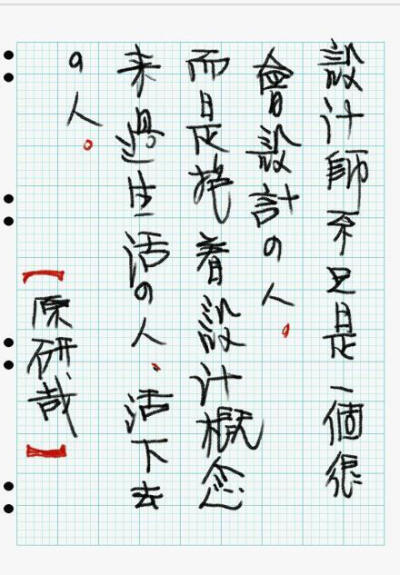 設计師不只是一個很
會設計の人。
而是抱着設计概念
来過生活の人、活下去
の人。
【原研哉】